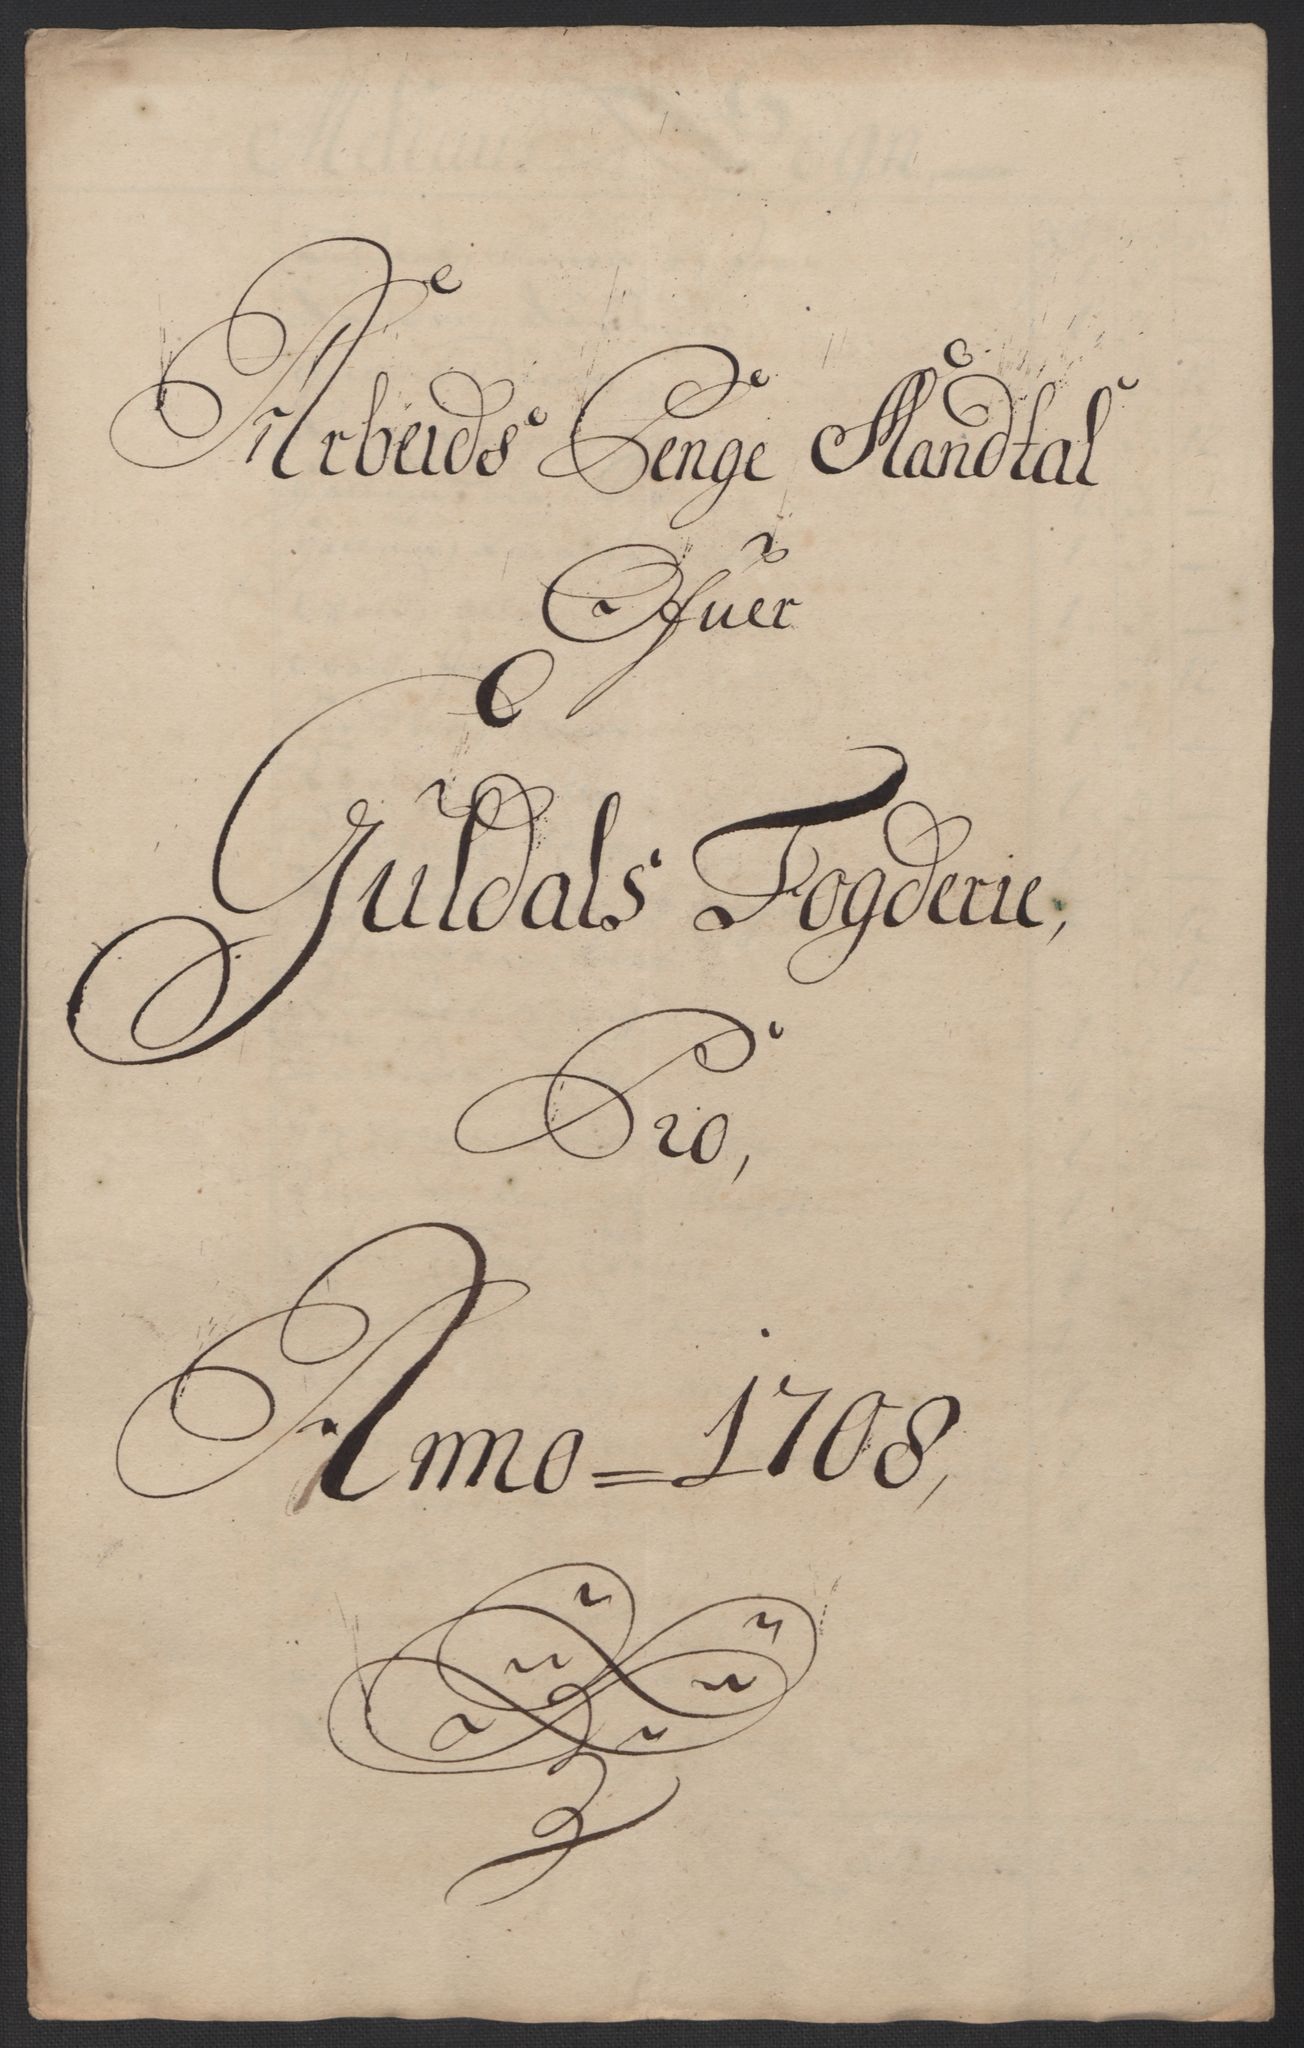 Arbeids Penge Mandtal
Ofuer
Guldals Fogderie,
Pro,
Anno = 1708,